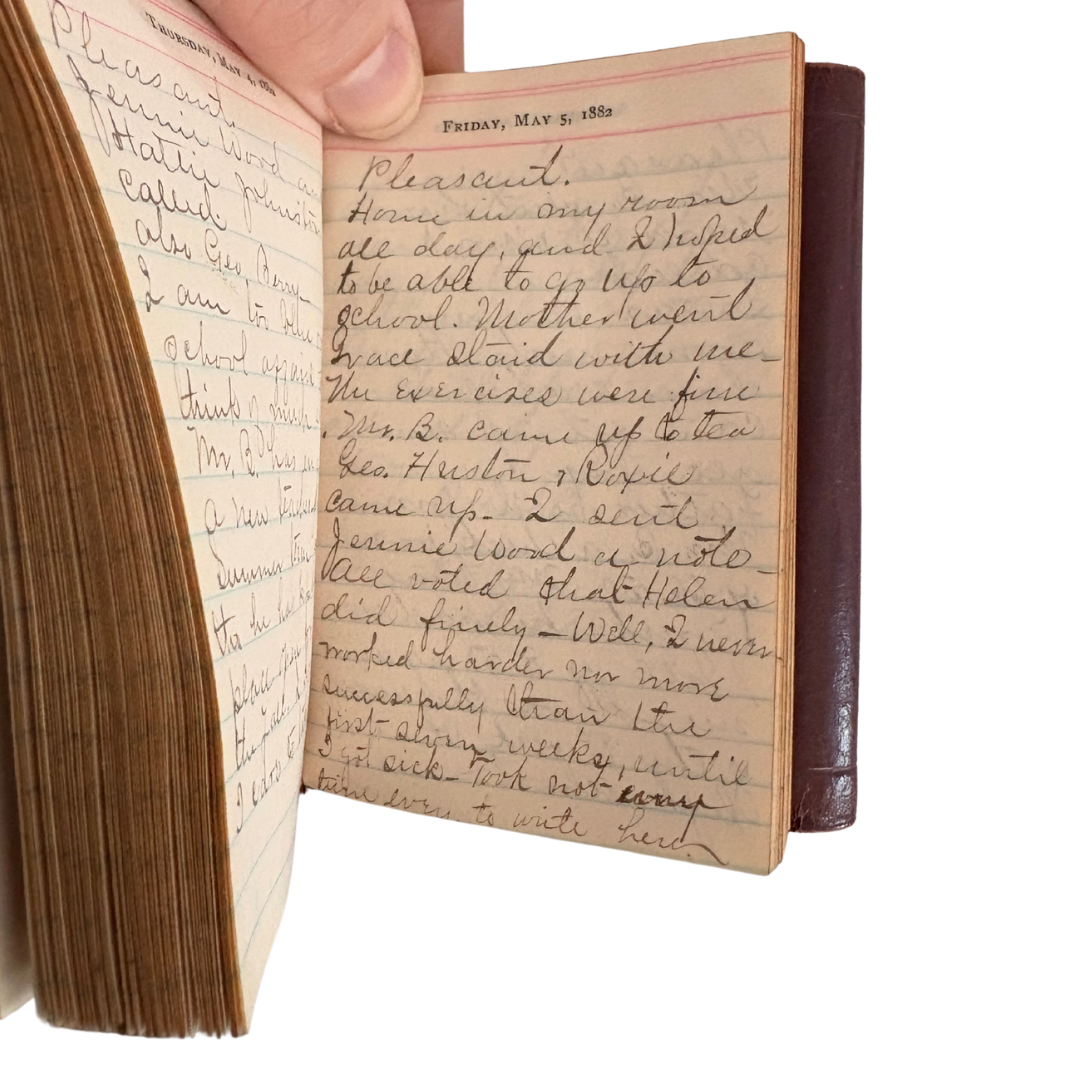 Thursday, May 4, 1882
Pleasant.
Jennie Wood
Hattie Johnston
called.
also Geo. Berry-
I am too
school affairs
think so much
Mr. B. has
a new
Summer
to he has
place
the
I
Friday, May 5, 1882
Pleasant.
Home in my room
all day, and I hoped
to be able to go up to
school. Mother went
Grace staid with me-
The Exercises were fine
. Mr. B. came up to tea
Geo. Huston & Roxie
came up- I sent
Jennie Wood a note-
All voted that Helen
did finely - Well, I never
worked harder nor more
successfully than the
first seven weeks, until
I got sick - Took not
time even to write here